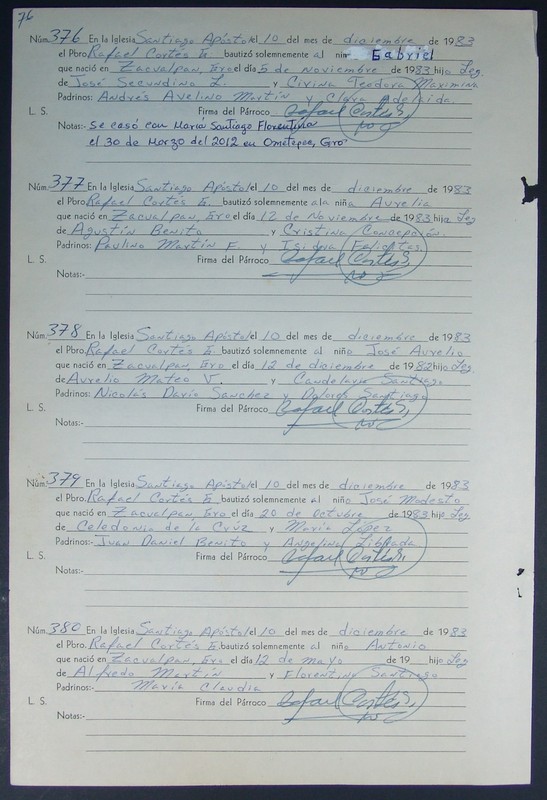 76
Núm. 376 En la Iglesia Santiago Apóstol el 10 del mes de diciembre de 1983
el Pbro. Rafael Cortés E. bautizó solemnemente al niño Gabriel
que nació en Zacualpan, Gro el día 5 de Noviembre de 1983 hijo Leg
de José Secundino L. y Civina Teodora Maximina
Padrinos: Andrés Avelino Martín y Clara Adelaida.
L. S. Firma del Párroco Rafael Cortés
Notas: Se casó con María Santiago Florentino
el 30 de Marzo del 2012 en Ometepec, Gro.
Núm. 377 En la Iglesia Santiago Apóstol el 10 del mes de diciembre de 1983
el Pbro. Rafael Cortés E. bautizó solemnemente a la niña Aurelia
que nació en Zacualpan, Gro el día 12 de Noviembre de 1983 hija Leg
de Agustín Benito y Cristina Concepción.
Padrinos: Paulino Martín F. y Isidra Felicitas.
L. S. Firma del Párroco Rafael Cortés
Notas:-
Núm. 378 En la Iglesia Santiago Apóstol el 10 del mes de diciembre de 1983
el Pbro. Rafael Cortés E. bautizó solemnemente al niño José Aurelio
que nació en Zacualpan, Gro el día 12 de diciembre de 1982 hijo Leg
de Aurelio Mateo V. y Candelaria Santiago
Padrinos: Nicolás Darío Sanchez y Dolores Santiago
L. S. Firma del Párroco Rafael Cortés
Notas:-
Núm. 379 En la Iglesia Santiago Apóstol el 10 del mes de diciembre de 1983
el Pbro. Rafael Cortés E. bautizó solemnemente al niño José Modesto
que nació en Zacualpan, Gro el día 20 de Octubre de 1983 hijo Leg
de Celedonia de la Cruz y María López
Padrinos:- Juan Daniel Benito y Angelina Librada
L. S. Firma del Párroco Rafael Cortés
Notas:-
Núm. 380 En la Iglesia Santiago Apóstol el 10 del mes de diciembre de 1983
el Pbro. Rafael Cortés E. bautizó solemnemente al niño Antonio
que nació en Zacualpan, Gro el día 12 de mayo de 19 hijo Leg
de Alfredo Martín y Florentina Santiago
Padrinos:- María Claudia
L. S. Firma del Párroco Rafael Cortés
Notas:-